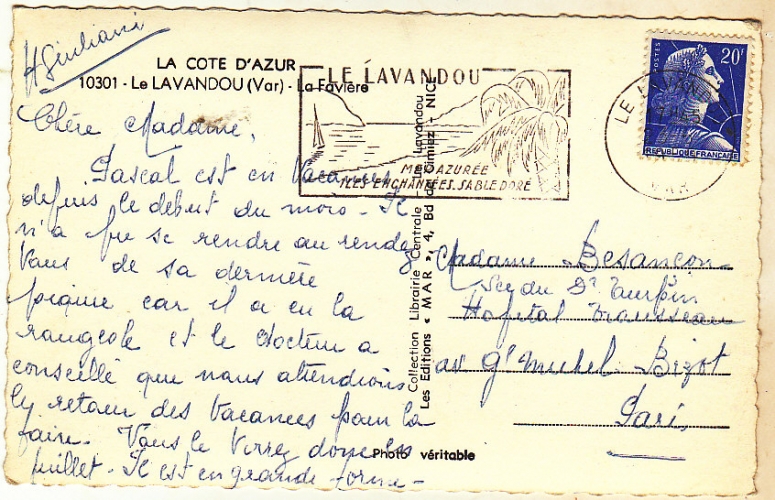 HGiuliani
LA COTE D'AZUR
10301 - Le LAVANDOU (Var) - La Favière
LE LAVANDOU
MER AZURÉE
ILES ENCHANTÉES. SABLE DORÉ
POSTES
20F
REPUBLIQUE FRANÇAISE
LE LAVANDOU
VAR
Chère Madame,
Pascal est en Vacances
depuis le début du mois. Il
n'a pu se rendre au rendez
Vous de sa dernière
piqure car il a eu la
rougeole et le Docteur a
conseillé que nous attendions
le retour des Vacances pour la
faire. Vous le Verrez donc
juillet. Il est en grande forme -
Collection Librairie Centrale - Le Lavandou
Les Editions « MAR », 4, Bd de Cimiez - NICE
Photo véritable
Madame Besançon
Sce du Dr Turpin
Hopital Trousseau
av Gl Michel Bizot
Paris